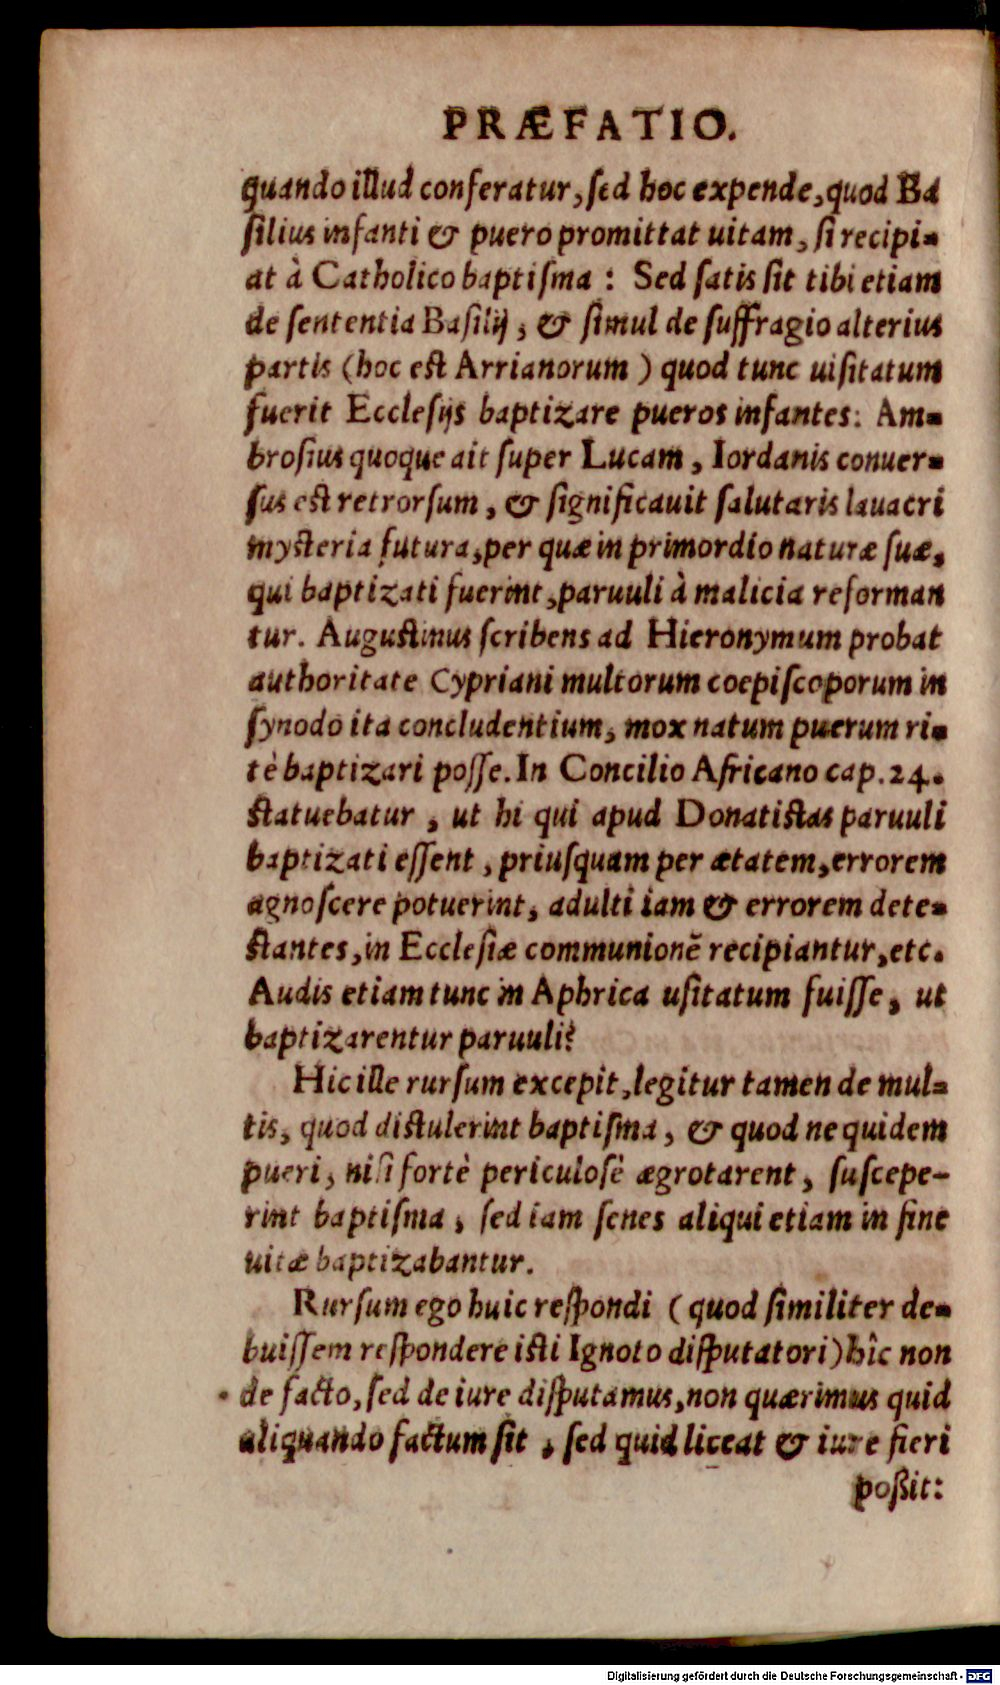 PRÆFATIO.
quando illud conferatur, ſed hoc expende, quod Ba
ſilius infanti & puero promittat uitam, ſi recipi-
at à Catholico baptiſma : Sed ſatis ſit tibi etiam
de ſententia Baſilij, & ſimul de ſuffragio alterius
partis (hoc eſt Arrianorum) quod tunc uiſitatum
fuerit Eccleſijs baptizare pueros infantes: Am-
broſius quoque ait ſuper Lucam, Iordanis conuer-
ſus eſt retrorſum, & ſignificauit ſalutaris lauacri
myſteria futura, per quæ in primordio naturæ ſuæ,
qui baptizati fuerint, paruuli à malicia reforman
tur. Auguſtinus ſcribens ad Hieronymum probat
authoritate Cypriani multorum coepiſcoporum in
ſynodo ita concludentium, mox natum puerum ri-
tè baptizari poſſe. In Concilio Africano cap. 24.
ſtatuebatur, ut hi qui apud Donatiſtas paruuli
baptizati eſſent, priuſquam per ætatem, errorem
agnoſcere potuerint, adulti iam & errorem dete-
ſtantes, in Eccleſiæ communionẽ recipiantur, etc.
Audis etiam tunc in Aphrica uſitatum fuiſſe, ut
baptizarentur paruuli?
Hic ille rurſum excepit, legitur tamen de mul-
tis, quod diſtulerint baptiſma, & quod ne quidem
pueri, niſi fortè periculoſè ægrotarent, ſuſcepe-
rint baptiſma, ſed iam ſenes aliqui etiam in fine
uitæ baptizabantur.
Rurſum ego huic reſpondi (quod ſimiliter de-
buiſſem reſpondere iſti Ignoto diſputatori) hîc non
de facto, ſed de iure diſputamus, non quærimus quid
aliquando factum ſit, ſed quid liceat & iure fieri
poßit:
Digitalisierung gefördert durch die Deutsche Forschungsgemeinschaft - DFG